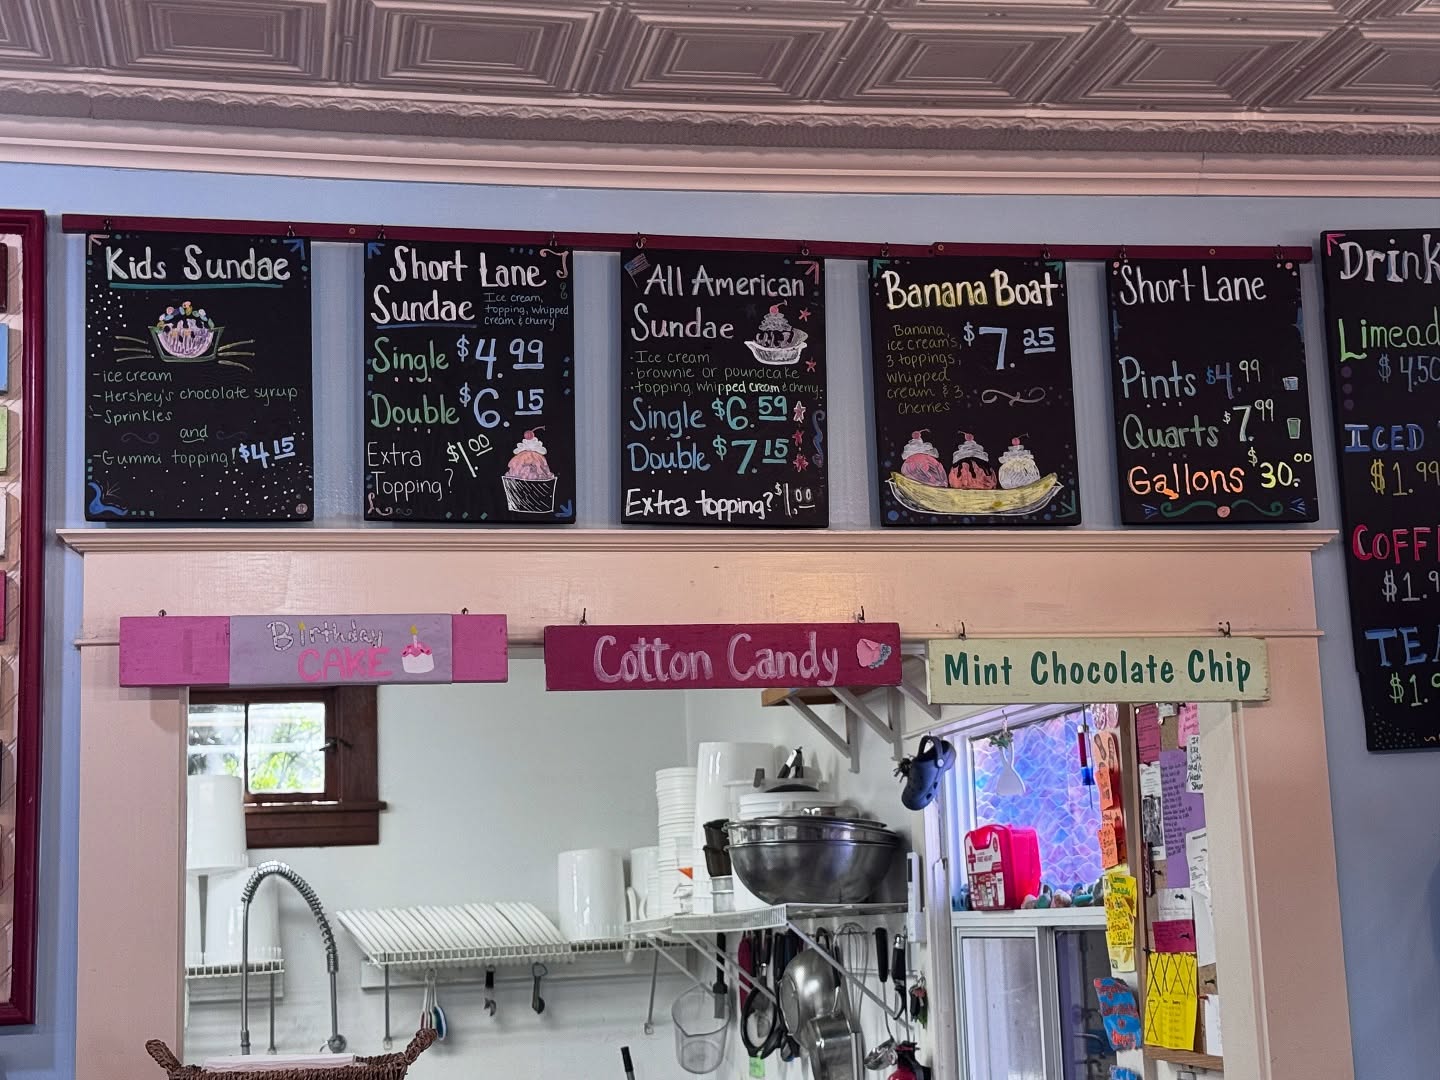 Kids Sundae
-ice cream
-Hershey's chocolate syrup
-Sprinkles
and
-Gummi topping! $4.15
Short Lane
Sundae
Ice cream,
topping, whipped
cream & cherry
Single $4.99
Double $6.15
Extra
Topping? $1.00
All American
Sundae
-Ice cream
-brownie or poundcake
-topping, whipped cream & cherry
Single $6.59
Double $7.15
Extra topping? $1.00
Banana Boat
Banana,
ice creams,
3 toppings,
whipped
cream & 3
cherries
$7.25
Short Lane
Pints $4.99
Quarts $7.99
Gallons $30.00
Drink
Limead
$4.50
ICED
$1.99
COFF
$1.9
TEA
$1.9
Birthday
CAKE
Cotton Candy
Mint Chocolate Chip